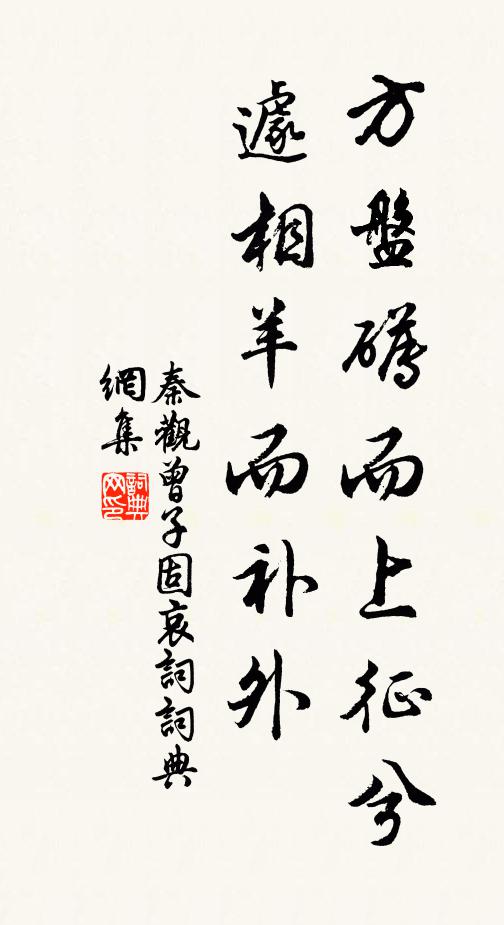 方盤礴而上征兮
遽相羊而补外
秦觀曾子固哀詞詞典
網集
詞典
网印